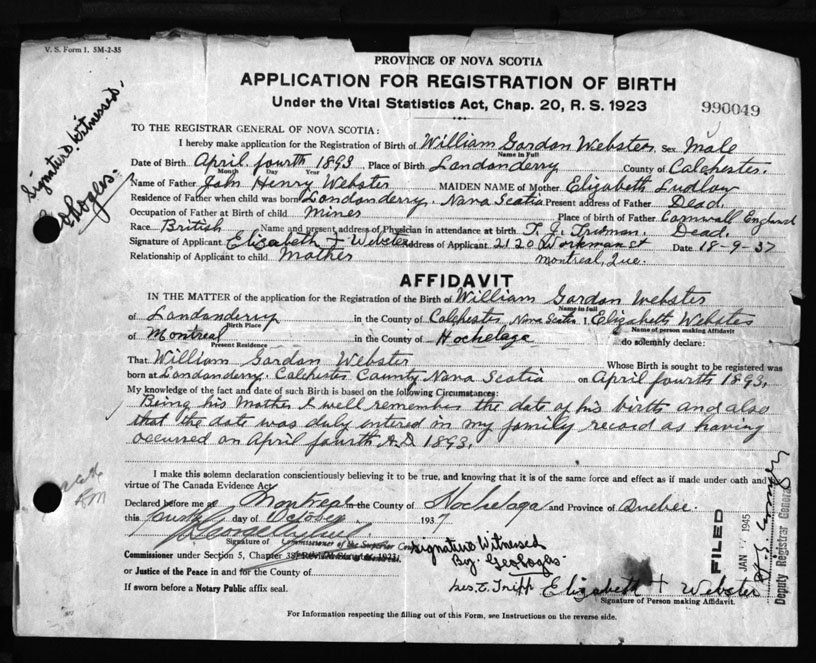 V. S. Form 1. 5M-2-35
PROVINCE OF NOVA SCOTIA
APPLICATION FOR REGISTRATION OF BIRTH
Under the Vital Statistics Act, Chap. 20, R. S. 1923
990049
Signature Witnessed
TO THE REGISTRAR GENERAL OF NOVA SCOTIA:
I hereby make application for the Registration of Birth of William Gordon Webster Sex Male
Name in Full
Date of Birth April fourth 1893 Place of Birth Londonderry County of Colchester.
Month Day Year
Name of Father John Henry Webster MAIDEN NAME of Mother Elizabeth Ludlow
Residence of Father when child was born Londonderry. Nova Scotia Present address of Father Dead.
Occupation of Father at Birth of child Miner Place of birth of Father Cornwall England
Race British Name and present address of Physician in attendance at birth T. J. Dead.
Signature of Applicant Elizabeth + Webster Address of Applicant 2120 Workman St Date 18-9-37
Relationship of Applicant to child Mother Montreal, Que.
AFFIDAVIT
IN THE MATTER of the application for the Registration of the Birth of William Gordon Webster
Name in Full
of Londonderry in the County of Colchester Nova Scotia I, Elizabeth Webster
Birth Place Name of person making Affidavit
of Montreal in the County of Hochelaga do solemnly declare:
Present Residence
That William Gordon Webster Whose Birth is sought to be registered was
born at Londonderry. Colchester County Nova Scotia on April fourth 1893.
My knowledge of the fact and date of such Birth is based on the following Circumstances:
Being his Mother I well remember the date of his birth and also
that the date was duly entered in my family record as having
occurred on April fourth A.D. 1893.
I make this solemn declaration conscientiously believing it to be true, and knowing that it is of the same force and effect as if made under oath and by
virtue of The Canada Evidence Act.
Declared before me at Montreal in the County of Hochelaga and Province of Quebec.
this day of October 1937
Signature of Commissioner of the Superior
Commissioner under Section 5, Chapter 38, Revised Statutes, 1923
or Justice of the Peace in and for the County of
If sworn before a Notary Public affix seal.
Signature Witnessed
By
Elizabeth + Webster
Signature of Person making Affidavit.
FILED
JAN 1945
Deputy Registrar General
For Information respecting the filling out of this Form, see Instructions on the reverse side.